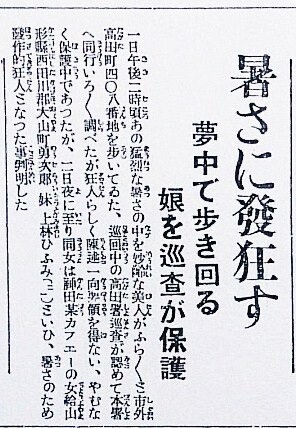 暑さに發狂す
夢中で歩き回る
娘を巡査が保護
一日午後二時頃あの猛烈な暑さの中を妙齡な美人がふら〱と市外
高田町四〇八番地を歩いてゐた、巡回中の高田署巡査が認めて本署
へ同行いろ〱調べたが狂人らしく陳述一向要領を得ない、やむな
く保護中であつたが、二日夜に至り同女は神田某カフエーの女給山
形縣西田川郡大山町勇次郎妹上林ひふみ(二〇)といひ、暑さのため
發作的狂人となつた事判明した